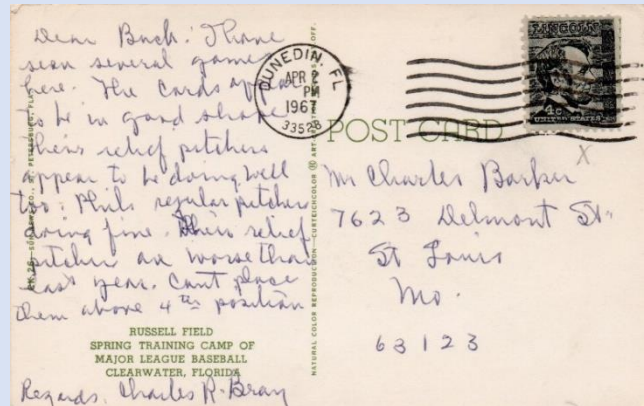 Dear Buck: I have
seen several games
here. The Cards appear
to be in good shape
their relief pitchers
appear to be doing well
too. Phils regular pitchers
doing fine. Their relief
pitchers are worse than
last year. Cant place
them above 4th position
RUSSELL FIELD
SPRING TRAINING CAMP OF
MAJOR LEAGUE BASEBALL
CLEARWATER, FLORIDA
Regards. Charles R. Bray
NATURAL COLOR REPRODUCTION—CURTEICHCOLOR ® ART
DUNEDIN, FL
APR 2
PM
1967
33528
LINCOLN
4¢
UNITED STATES
POST CARD
Mr Charles Barker
7623 Delmont St.
St Louis
Mo.
63123